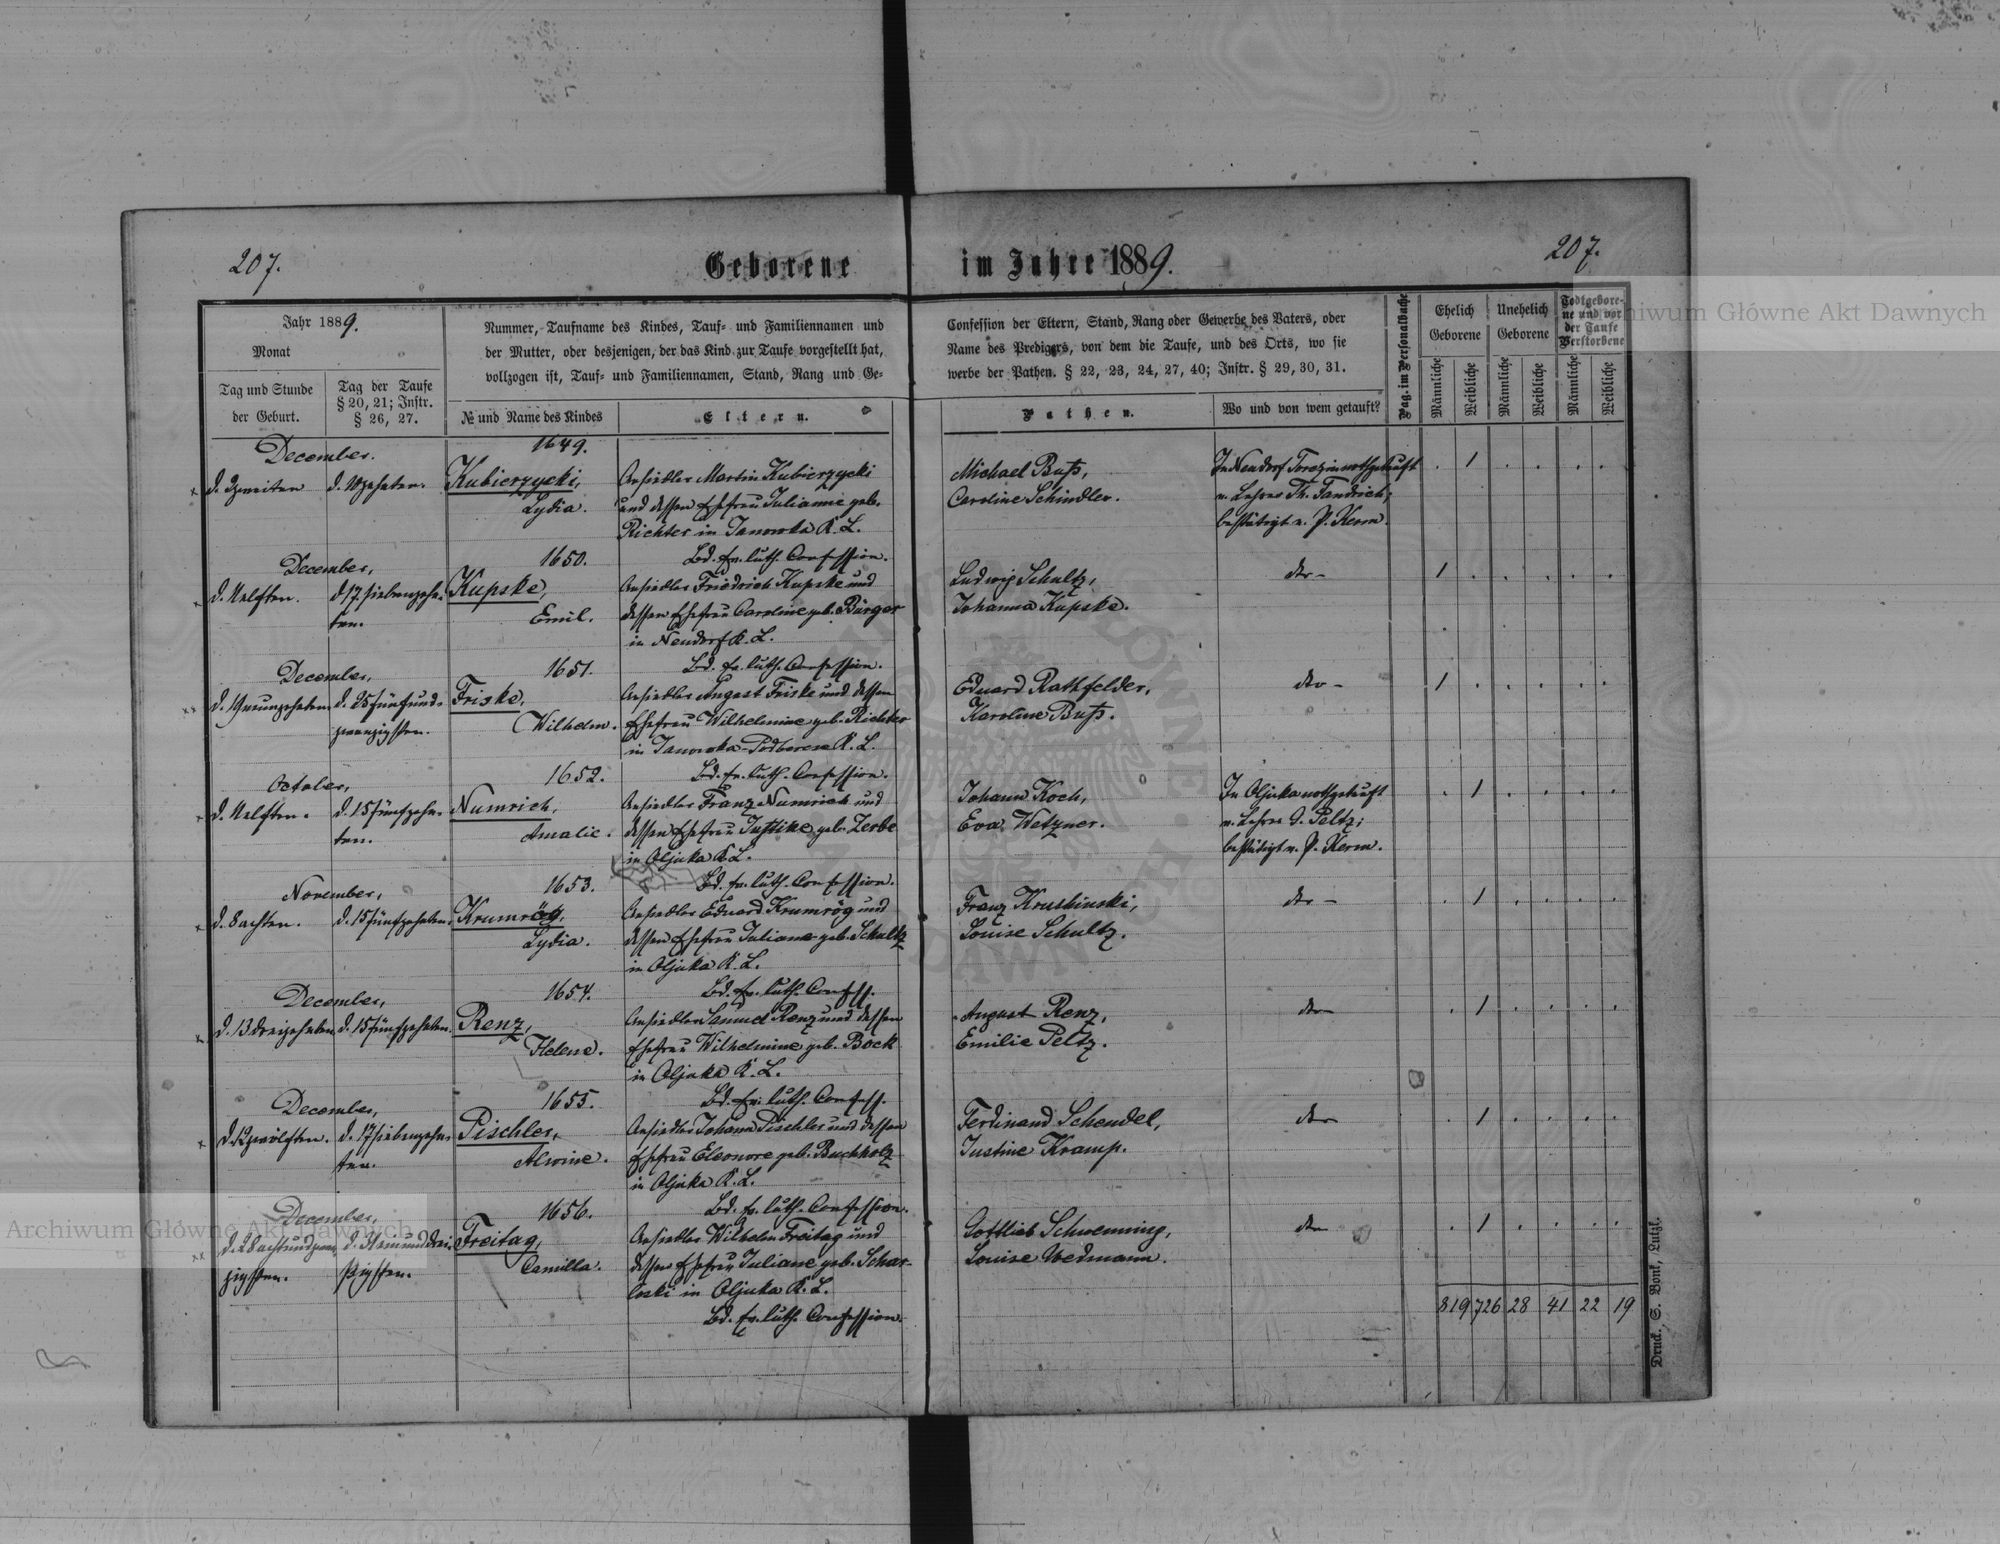 207.
Geborene im Jahre 1889.
207.
Jahr 1889.
Monat
Tag und Stunde
der Geburt.
Tag der Taufe
§ 20, 21; Instr.
§ 26, 27.
Nummer, Taufname des Kindes, Tauf- und Familiennamen und
der Mutter, oder desjenigen, der das Kind zur Taufe vorgestellt hat,
vollzogen ist, Tauf- und Familiennamen, Stand, Rang und Ge-
№ und Name des Kindes
Eltern.
Confession der Eltern, Stand, Rang oder Gewerbe des Vaters, oder
Name des Predigers, von dem die Taufe, und des Orts, wo sie
werbe der Pathen. § 22, 23, 24, 27, 40; Instr. § 29, 30, 31.
Pathen.
Wo und von wem getauft?
Pag. im Personalbuche
Ehelich
Geborene
Unehelich
Geborene
Todtgebore-
ne und vor
der Taufe
Verstorbene
Männliche
Weibliche
Männliche
Weibliche
Männliche
Weibliche
December.
d. 2 zweiten
d. 10 zehnten.
1649.
Kubierzycki,
Lydia.
Ansiedler Martin Kubierzycki
und dessen Ehefrau Julianne geb.
Richter in Janowka K. L.
Bd. ev. luth. Confession.
Michael Buß,
Caroline Schindler.
In Neudorf Torczin nothgetauft
v. Lehrer Th. Fandrich;
bestätigt v. P. Kerm.
1
December,
d. 11 elften.
d. 17 siebenzehn-
ten.
1650.
Kupske,
Emil.
Ansiedler Friedrich Kupske und
dessen Ehefrau Caroline geb. Bürger
in Neudorf K. L.
Bd. ev. luth. Confession.
Ludwig Schultz,
Johanna Kupske.
dto-
1
December,
d. 19 neunzehnten
d. 25 fünfund-
zwanzigsten.
1651.
Friske,
Wilhelm.
Ansiedler August Friske und dessen
Ehefrau Wilhelmine geb. Richter
in Janowka-Podberese K. L.
Bd. ev. luth. Confession.
Eduard Rathfelder,
Karoline Buß.
dto-
1
October,
d. 11 elften.
d. 15 fünfzehn-
ten.
1652.
Numrich,
Amalie.
Ansiedler Franz Numrich und
dessen Ehefrau Justine geb. Zerbe
in Olyka K. L.
Bd. ev. luth. Confession.
Johann Koch,
Eva Wetzner.
In Olyka nothgetauft
v. Lehrer G. Peltz;
bestätigt v. P. Kerm.
1
November,
d. 8 achten.
d. 15 fünfzehnten.
1653.
Krumrög,
Lydia.
Ansiedler Eduard Krumrög und
dessen Ehefrau Juliane geb. Schultz
in Olyka K. L.
Bd. ev. luth. Confess.
Franz Krushinski,
Louise Schultz.
dto-
1
December,
d. 13 dreizehnten
d. 15 fünfzehnten.
1654.
Renz,
Helene.
Ansiedler Samuel Renz und dessen
Ehefrau Wilhelmine geb. Bock
in Olyka K. L.
Bd. ev. luth. Confess.
August Renz,
Emilie Peltz.
dto
1
December,
d. 12 zwölften.
d. 17 siebenzehn-
ten.
1655.
Pischler,
Alwine.
Ansiedler Johann Pischler und dessen
Ehefrau Eleonore geb. Buchholz
in Olyka K. L.
Bd. ev. luth. Confession.
Ferdinand Schendel,
Justine Kramp.
dto
1
December,
d. 28 achtundzwan-
zigsten.
d. 31 einunddrei-
ßigsten.
1656.
Freitag,
Camilla.
Ansiedler Wilhelm Freitag und
dessen Ehefrau Juliane geb. Schar-
loski in Olyka K. L.
Bd. ev. luth. Confession.
Gottlieb Schwenning,
Louise Wedmann.
dto
1
819 726 28 41 22 19
Druck. S. Bonk, Lutzk.
Archiwum Główne Akt Dawnych
Archiwum Główne Akt Dawnych